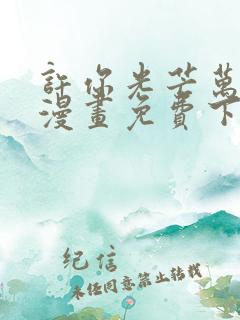 許你光芒萬
漫畫免費下
紀信
未经同意禁止转载